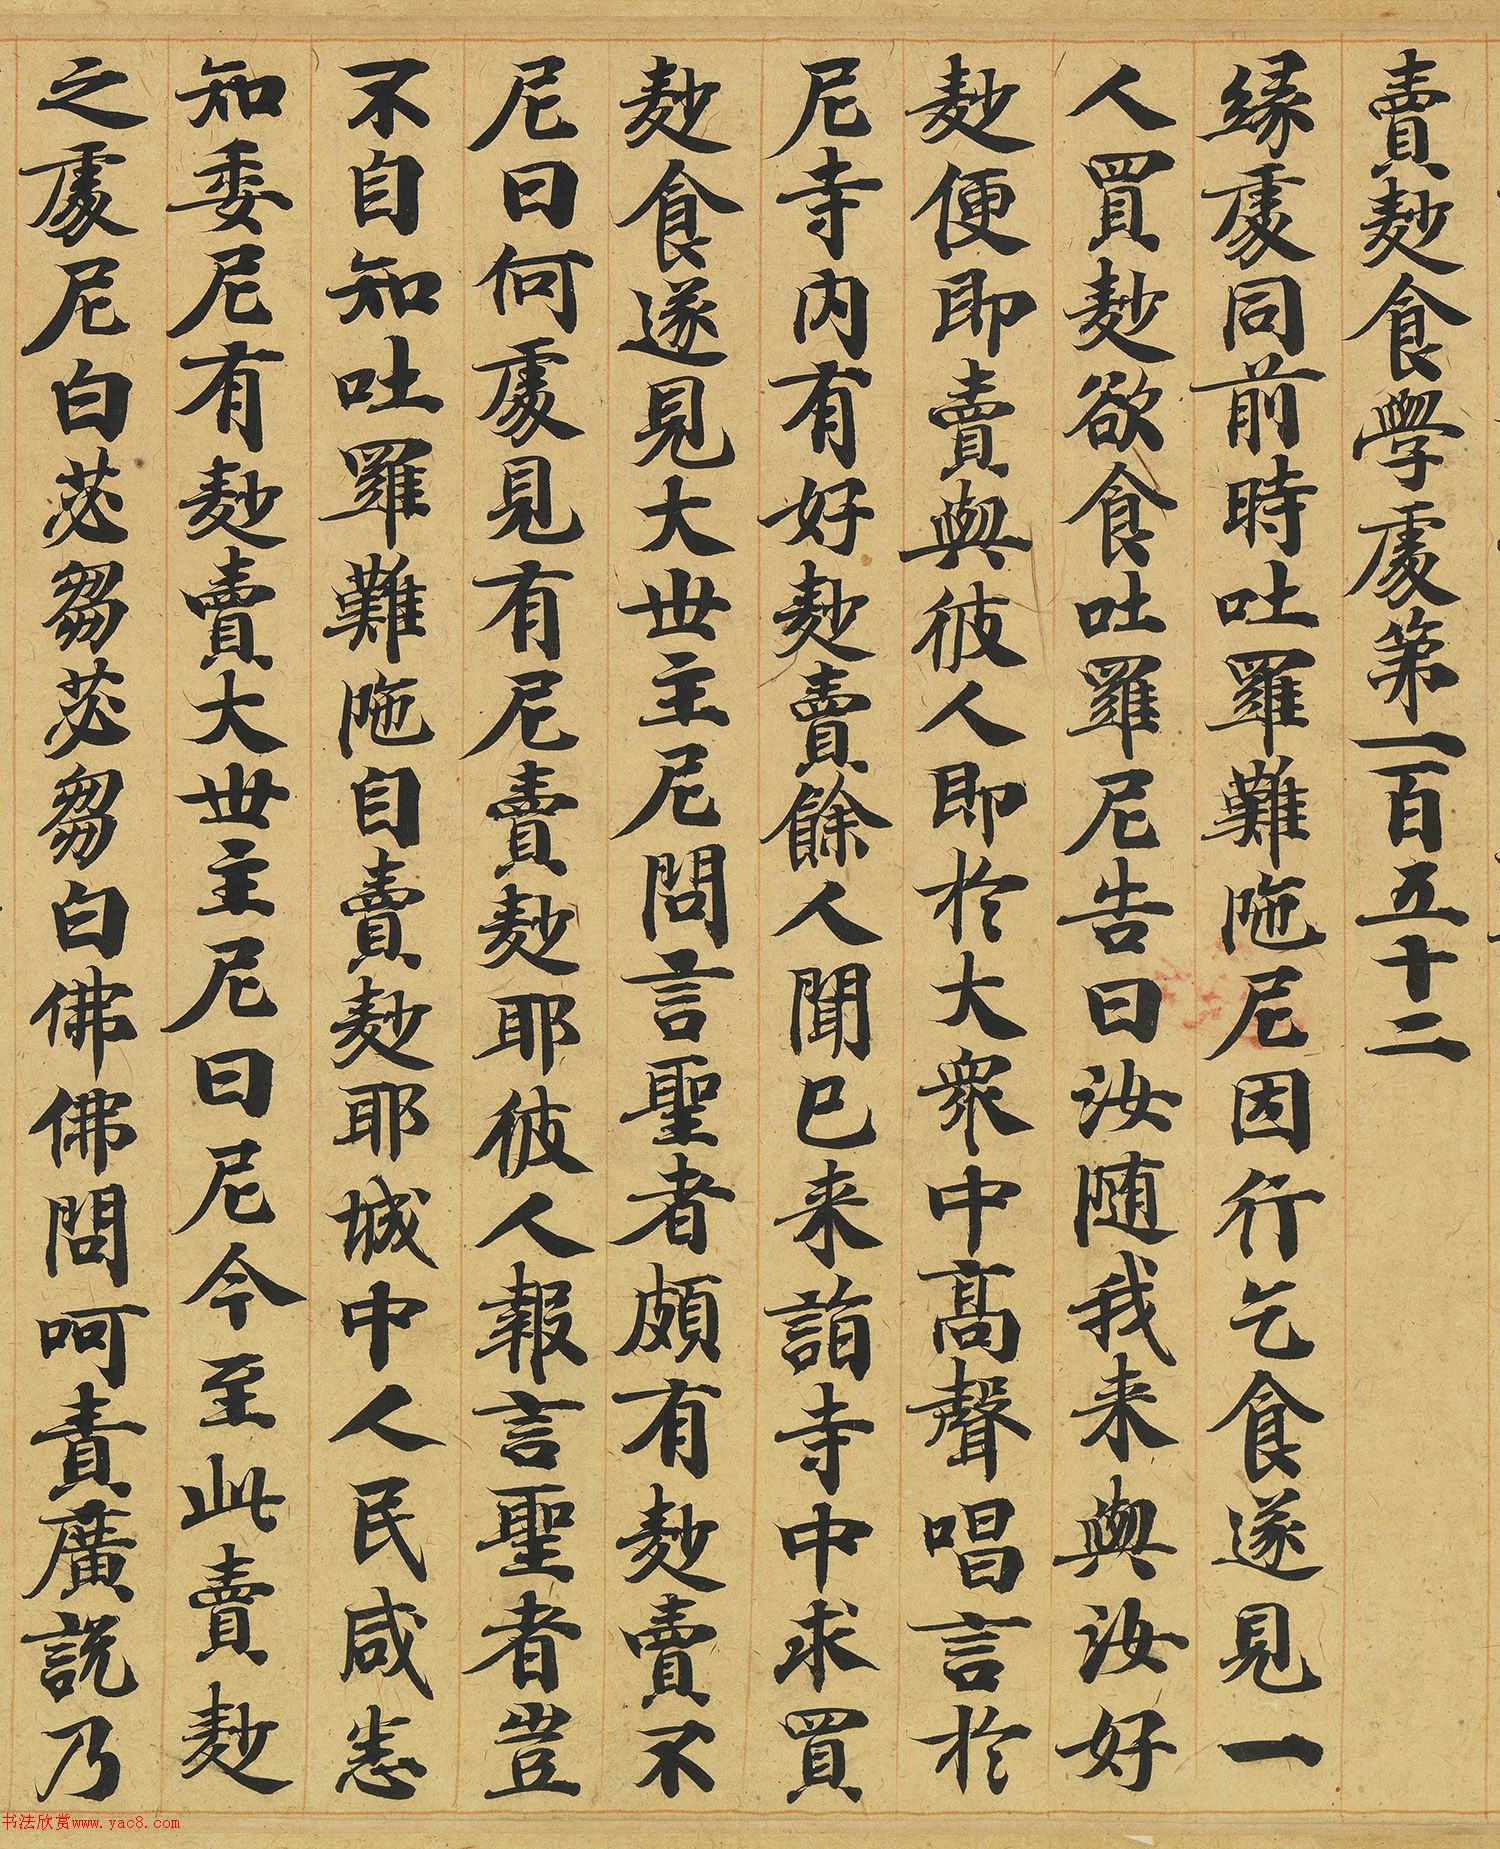 賣麨食學處第一百五十二
緣處同前時吐羅難陁尼因行乞食遂見一
人買麨欲食吐羅尼告曰汝随我来與汝好
麨便即賣與彼人即於大衆中髙聲唱言於
尼寺内有好麨賣餘人聞已来詣寺中求買
麨食遂見大世主尼問言聖者頗有麨賣不
尼曰何處見有尼賣麨耶彼人報言聖者豈
不自知吐羅難陁自賣麨耶城中人民咸悉
知委尼有麨賣大世主尼曰尼今至此賣麨
之處尼白苾芻苾芻白佛佛問呵責廣說乃
书法欣赏www.yac8.com